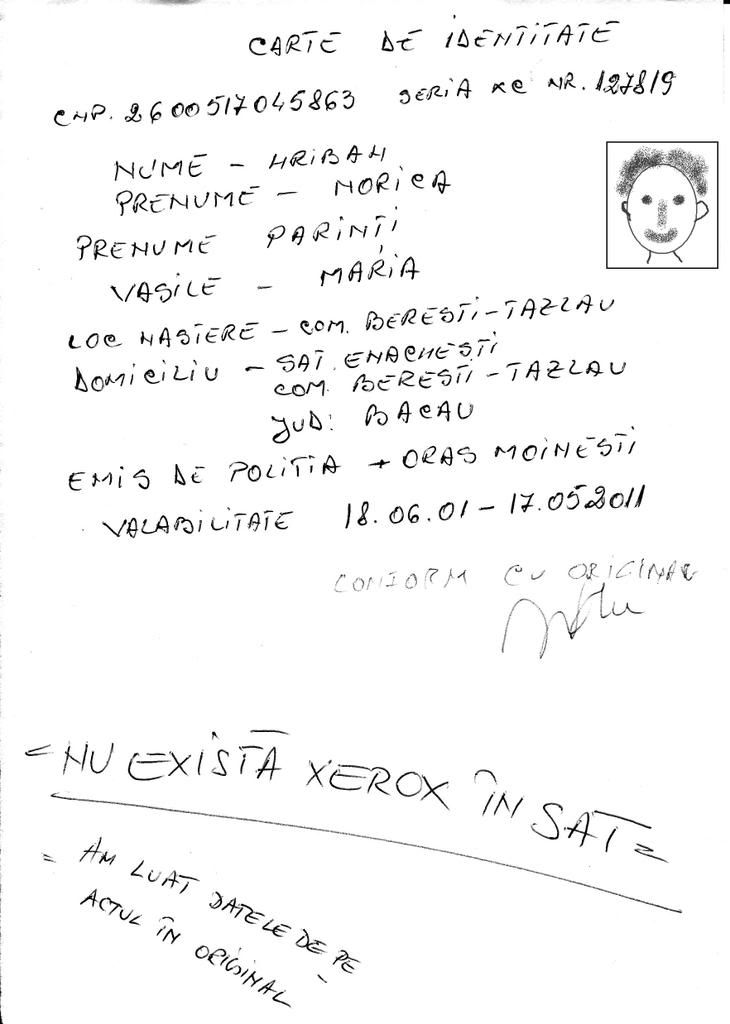 CARTE DE IDENTITATE
CNP. 2600517045863 SERIA XC NR. 127819
NUME - HRIBAN
PRENUME - NORICA
PRENUME PARINTI
VASILE - MARIA
LOC NASTERE - COM. BERESTI-TAZLAU
DOMICILIU - SAT. ENACHESTI
COM. BERESTI-TAZLAU
JUD: BACAU
EMIS DE POLITIA + ORAS MOINESTI
VALABILITATE 18.06.01 - 17.05.2011
CONFORM CU ORIGINAL
= NU EXISTĀ XEROX ÎN SAT =
= AM LUAT DATELE DE PE
ACTUL ÎN ORIGINAL -